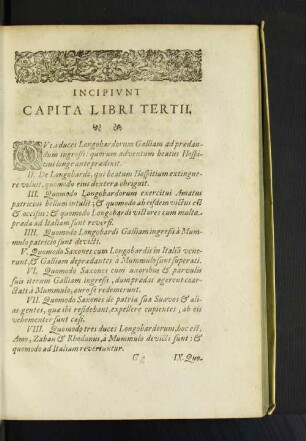 INCIPIVNT
CAPITA LIBRI TERTII.
QVod duces Longobardorum Galliam ad prædan-
dum ingressi: quorum aduentum beatus Hospi-
tius longe ante prædixit.
II. De Longobardo, qui beatum Hospitium extingue-
re voluit, quomodo eius dextera obriguit.
III. Quomodo Longobardorum exercitui Amatus
patricius bellum intulit; & quomodo ab eisdem victus est
& occisus: & quomodo Longobardi victores cum multa
præda ad Italiam sunt reuersi.
IIII. Quomodo Longobardi Galliam ingressi à Mum-
mulo patricio sunt deuicti.
V. Quomodo Saxones cum Longobardis in Italiã vene-
runt, & Galliam deprædantes à Mummulo sunt superati.
VI. Quomodo Saxones cum vxoribus & paruulis
suis iterum Galliam ingressi, dum prædas agerent coar-
ctati à Mummulo, auro se redemerunt.
VII. Quomodo Saxones de patria sua Suauos & ali-
as gentes, quæ ibi residebant, expellere cupientes, ab eis
vehementer sunt cæsi.
VIII. Quomodo tres duces Longobardorum, hoc est,
Amo, Zaban & Rhodanus, à Mummulo deuicti sunt: &
quomodo ad Italiam reuertuntur.
G g IX. Quo-